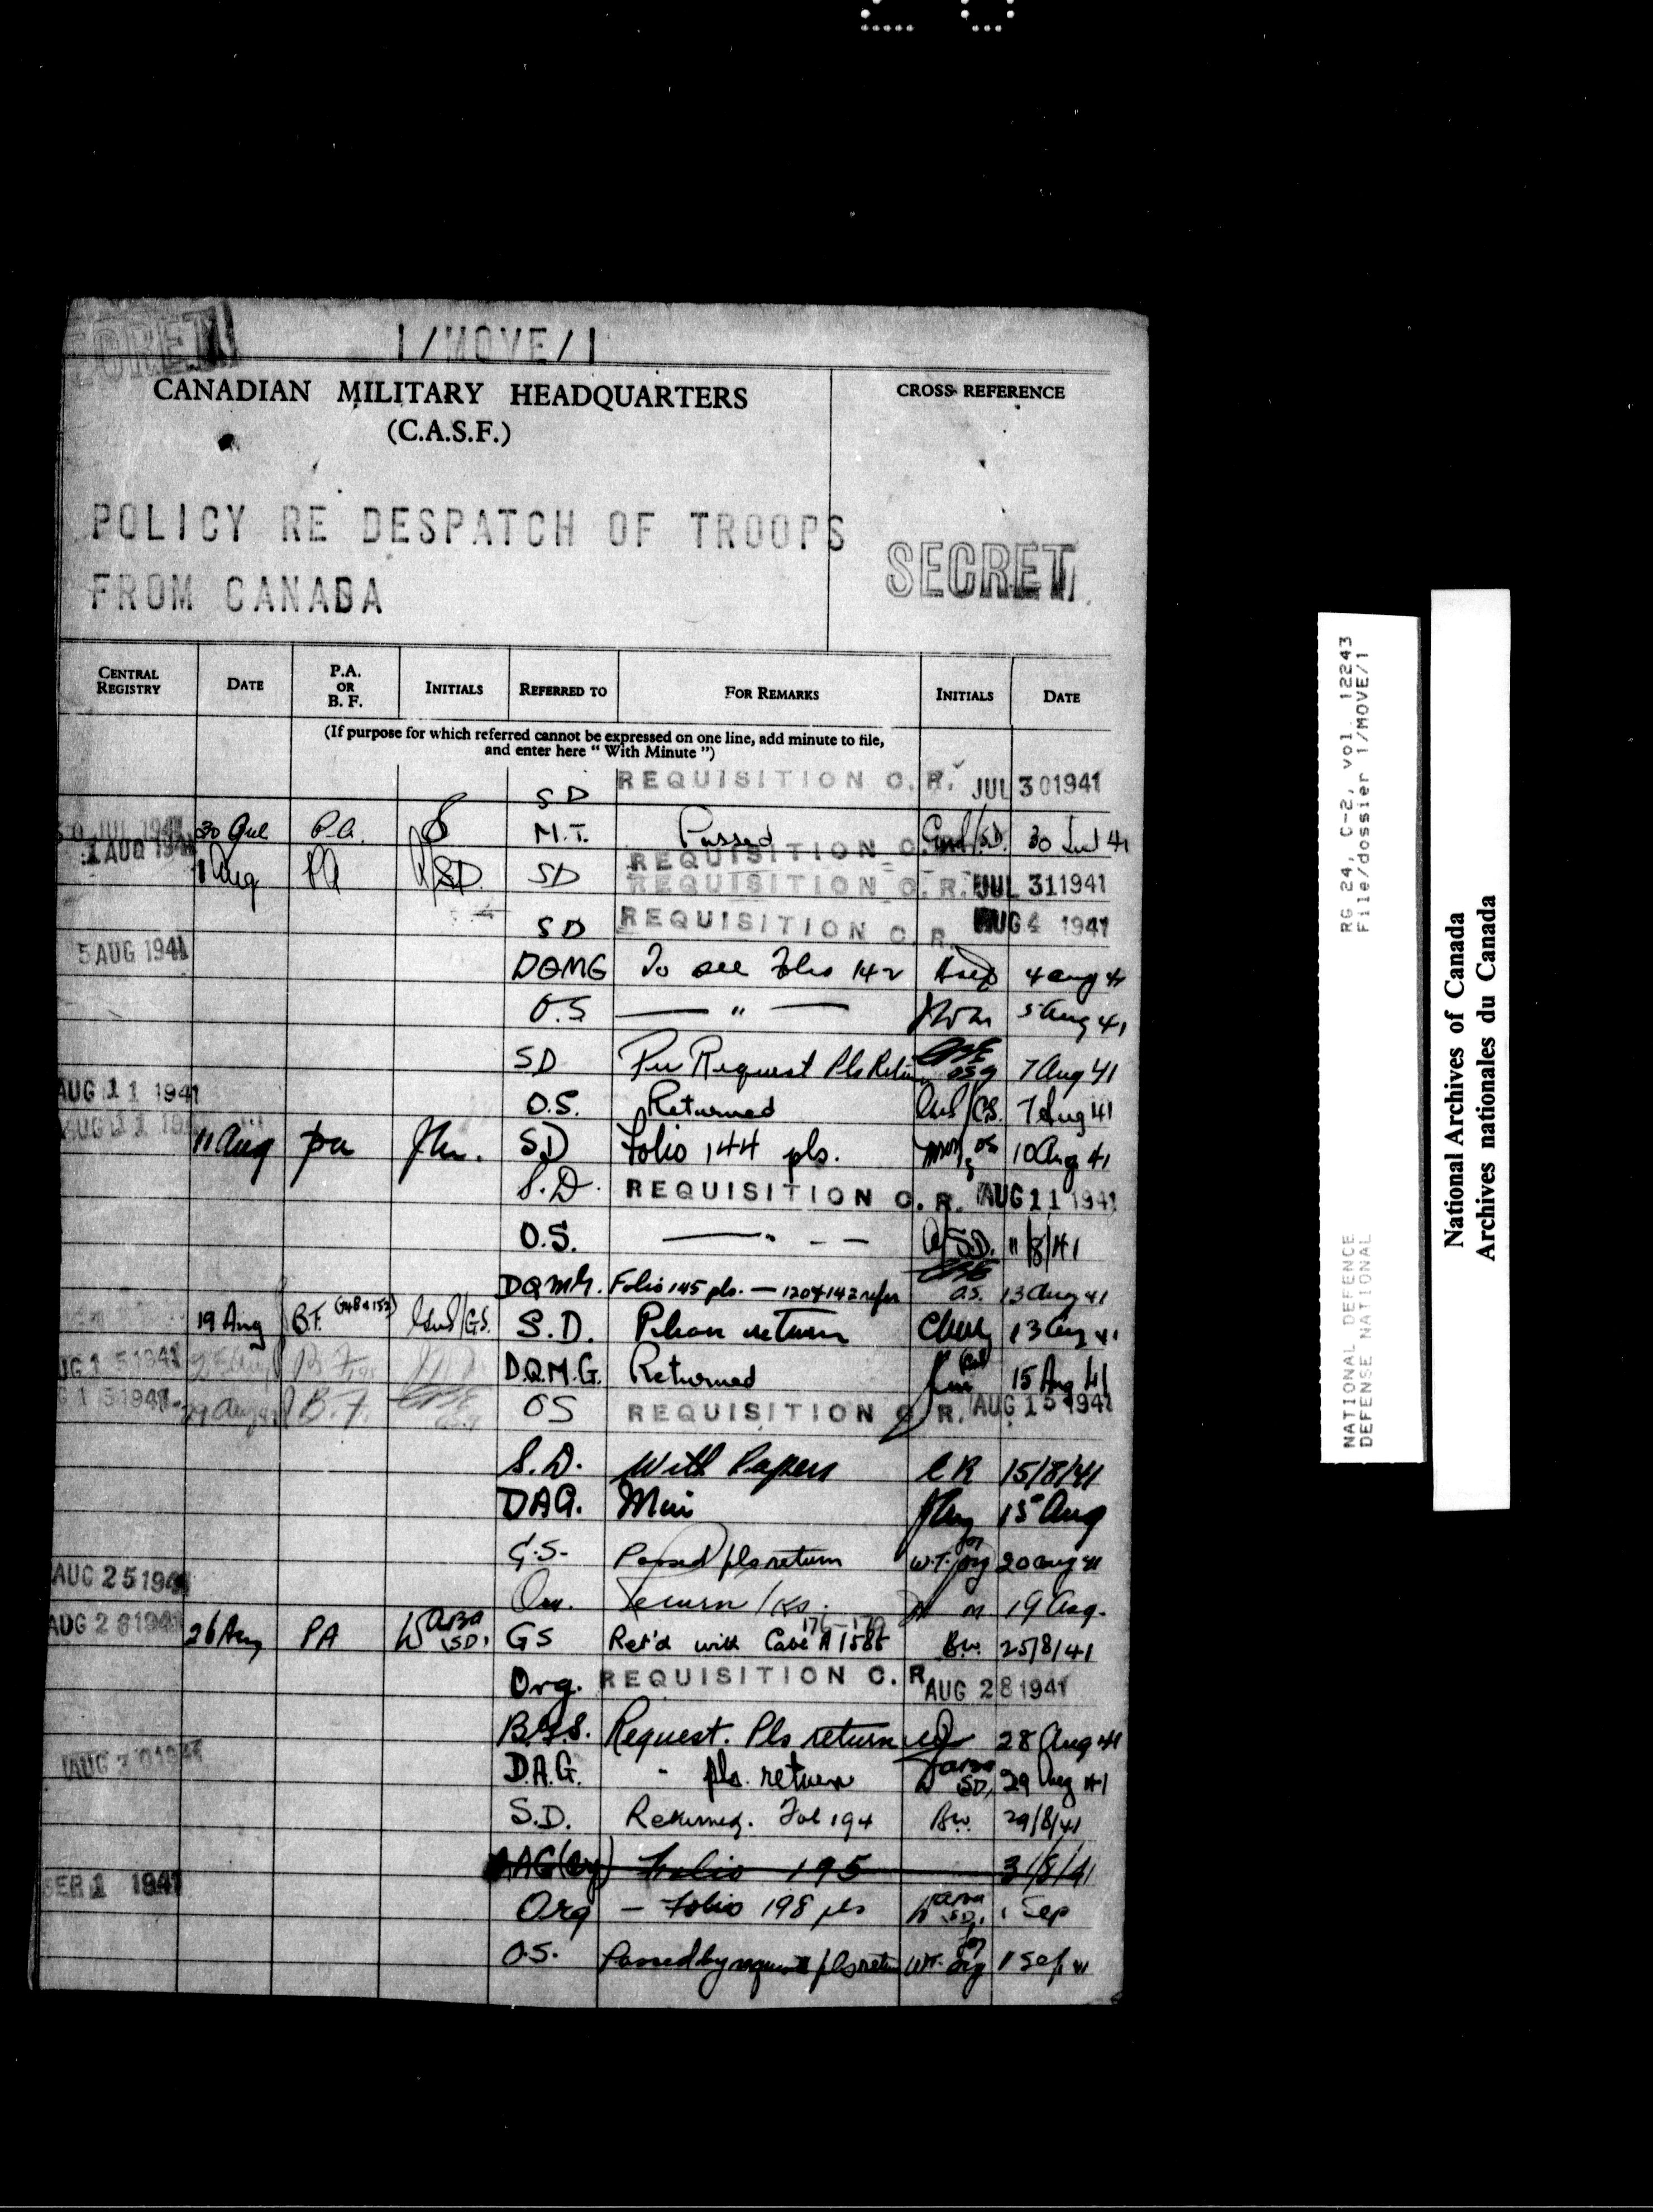 1/MOVE/1
CANADIAN MILITARY HEADQUARTERS
(C.A.S.F.)
CROSS REFERENCE
POLICY RE DESPATCH OF TROOPS
FROM CANADA
SECRET
CENTRAL REGISTRY DATE P.A. OR B. F. INITIALS REFERRED TO FOR REMARKS INITIALS DATE
(If purpose for which referred cannot be expressed on one line, add minute to file,
and enter here “ With Minute ”)
SD REQUISITION C. R. JUL 30 1941
JUL 1941 30 Jul P.A. M.T. Passed 30 Jul 41
1 AUG 1941 REQUISITION
1 Aug PA SD. SD REQUISITION C. R. JUL 31 1941
SD REQUISITION C. R. AUG 4 1941
5 AUG 1941 DQMG To see Folio 142 4 Aug 41
O.S. — " — 5 Aug 41
SD Per Request Pls Return 7 Aug 41
AUG 11 1941 O.S. Returned 7 Aug 41
AUG 11 11 Aug pa SD Folio 144 pls. 10 Aug 41
S.D. REQUISITION C. R. AUG 11 1941
O.S. S.D. 11/8/41
DQMG. Folio 145 pls. — 120 & 142 refer O.S. 13 Aug 41
19 Aug B.F. S.D. Please return 13 Aug 41
15 1941 B.F. D.Q.M.G. Returned 15 Aug 41
1 5 1941 B.F. OS REQUISITION C. R. AUG 15 1941
S.D. With Papers CR 15/8/41
DAG. Min 15 Aug
G.S. Passed pls return W.T. for Org 20 Aug 41
AUG 25 194 19 Aug.
AUG 26 1941 26 Aug PA SD. GS Ret'd with 25/8/41
Org. REQUISITION C. R. AUG 28 1941
B.G.S. Request. Pls return 28 Aug 41
D.A.G. " pls. return SD. 29 Aug 41
S.D. Returned. Fol 194 29/8/41
Folio 195 31/8/41
1 1941 Org — Folio 198 pls SD. 1 Sep
O.S. Passed by request pls return W.T. for Org 1 Sep 41
RG 24, C-2, vol. 12243
File/dossier 1/MOVE/1
NATIONAL DEFENCE
DEFENSE NATIONAL
National Archives of Canada
Archives nationales du Canada